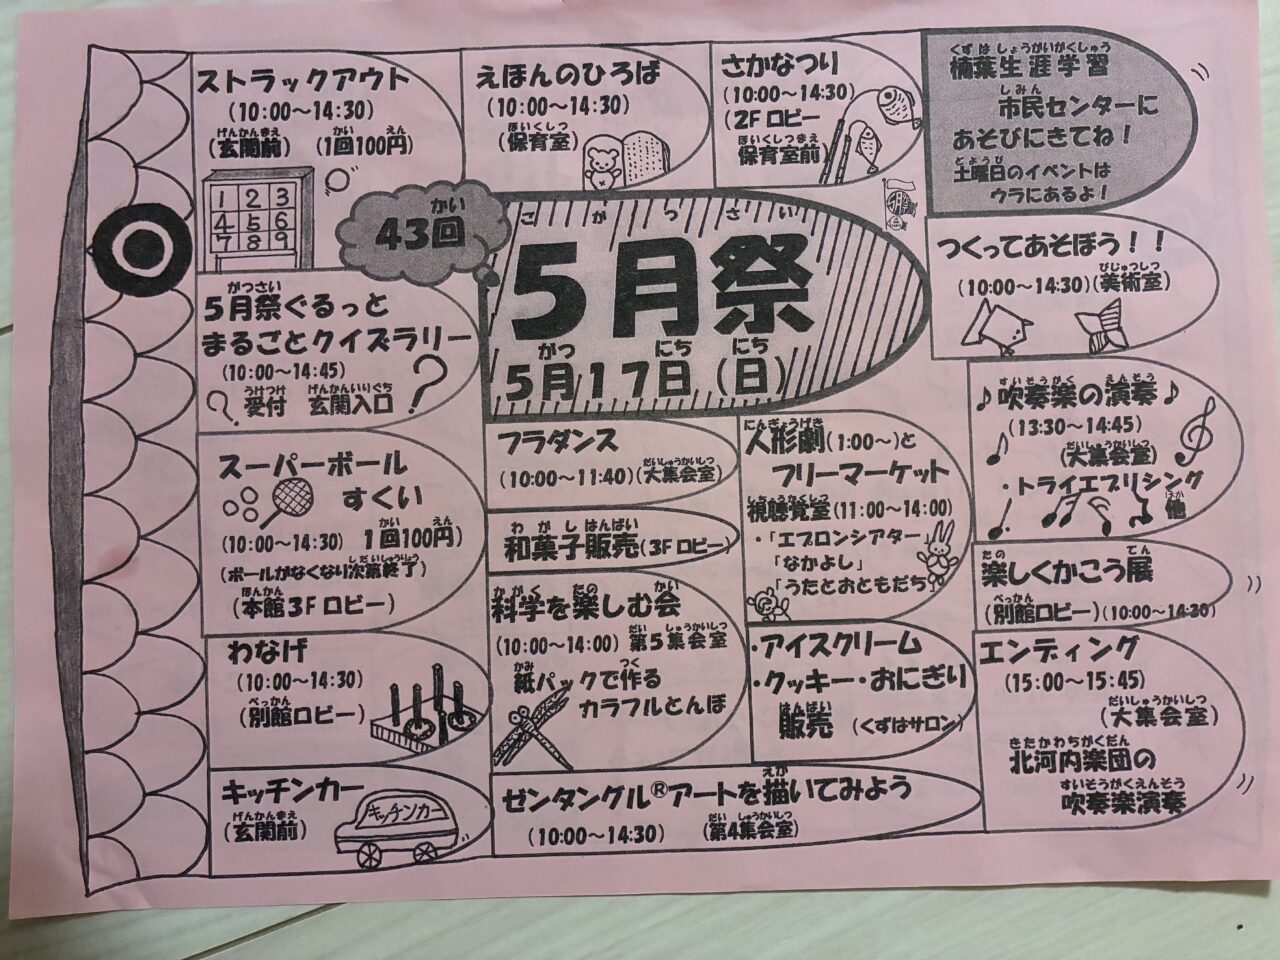 ストラックアウト
(10:00～14:30)
げんかんまえ かい えん
(玄関前) (1回100円)
1 2 3
4 5 6
7 8 9
えほんのひろば
(10:00～14:30)
ほいくしつ
(保育室)
さかなつり
(10:00～14:30)
(2Fロビー
ほいくしつまえ
保育室前)
くずはしょうがいがくしゅう
楠葉生涯学習
しみん
市民センターに
あそびにきてね！
どようび
土曜日のイベントは
ウラにあるよ！
かい
43回
ごがつさい
5月祭
がつ にち にち
5月17日(日)
つくってあそぼう！！
びじゅつしつ
(10:00～14:30)(美術室)
がつさい
5月祭ぐるっと
まるごとクイズラリー
(10:00～14:45)
うけつけ げんかんいりぐち
受付 玄関入口
すいそうがく えんそう
♪吹奏楽の演奏♪
(13:30～14:45)
だいしゅうかいしつ
(大集会室)
・トライエブリシング
ほか
他
フラダンス
だいしゅうかいしつ
(10:00～11:40)(大集会室)
にんぎょうげき
人形劇(1:00～)と
フリーマーケット
しちょうかくしつ
視聴覚室(11:00～14:00)
・「エプロンシアター」
「なかよし」
「うたとおともだち」
スーパーボール
すくい
かい えん
(10:00～14:30) 1回100円)
しだいしゅうりょう
(ボールがなくなり次第終了)
ほんかん
(本館3Fロビー)
わがしはんばい
和菓子販売(3Fロビー)
たの てん
楽しくかこう展
べっかん
(別館ロビー)(10:00～14:30)
かがく たの かい
科学を楽しむ会
だい しゅうかいしつ
(10:00～14:00) 第5集会室
かみ つく
紙パックで作る
カラフルとんぼ
わなげ
(10:00～14:30)
べっかん
(別館ロビー)
・アイスクリーム
・クッキー・おにぎり
はんばい
販売 (くずはサロン)
エンディング
(15:00～15:45)
だいしゅうかいしつ
(大集会室)
きたかわちがくだん
北河内楽団の
すいそうがくえんそう
吹奏楽演奏
キッチンカー
げんかんまえ
(玄関前)
キッチンカー
えが
ゼンタングル®アートを描いてみよう
だい しゅうかいしつ
(10:00～14:30) (第4集会室)